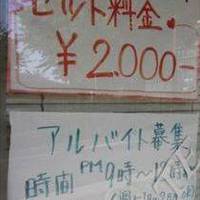 セルト料金
¥2.000-
アルバイト募集
時間 PM9時〜12時